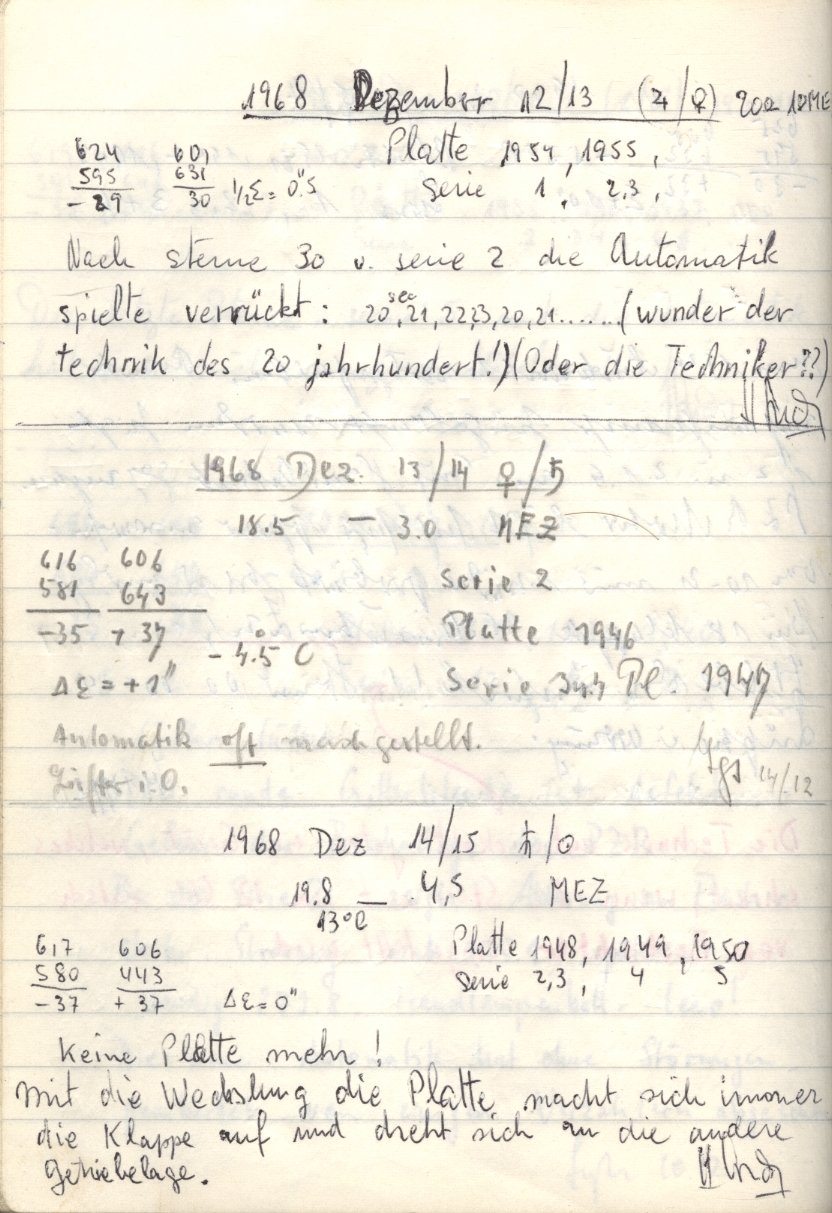 1968 Dezember 12/13 (♃/♀) 20
Platte 1954, 1955,
624 601
595 631
-29 30 ½Σ = 0"5
Serie 1, 2,3,
Nach sterne 30 u. serie 2 die Automatik
spielte verrückt: 20 sec, 21, 22, 23, 20, 21......(wunder der
technik des 20 jahrhundert!)(Oder die Techniker??)
1968 Dez. 13/14 ♀/♄
18.5 — 3.0 MEZ
616 606
581 643
-35 + 37
Serie 2
Platte 1946
-4.5° C
Δε = +1"
Serie 3u.4 Pl. 1947
Automatik oft nachgestellt.
Ziffer i.O.
14/12
1968 Dez 14/15 ♄/☉
19.8 — 4,5 MEZ
13°C
617 606
580 443
-37 + 37 Δε = 0"
Platte 1948, 1949, 1950
Serie 2,3, 4 5
Keine Platte mehr!
Mit die Wechslung die Platte macht sich immer
die Klappe auf und dreht sich an die andere
Getriebelage.